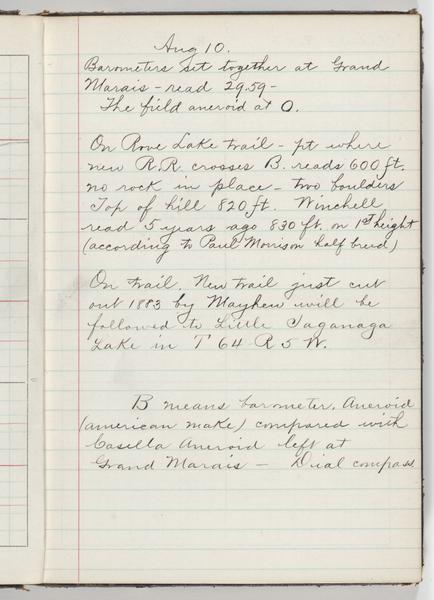 Aug 10.
Barometers set together at Grand
Marais - read 29.59-
The field aneroid at 0.
On Rove Lake trail - pt where
new R.R. crosses B. reads 600 ft.
no rock in place - two boulders
Top of hill 820 ft. Winchell
read 5 years ago 830 ft. on 1st height
(according to Paul Morrison half breed)
On trail. New trail just cut
out 1883 by Mayhew will be
followed to Little Saganaga
Lake in T 64 R 5 W.
B means barometer. Aneroid
(american make) compared with
Casella Aneroid left at
Grand Marais - Dial compass